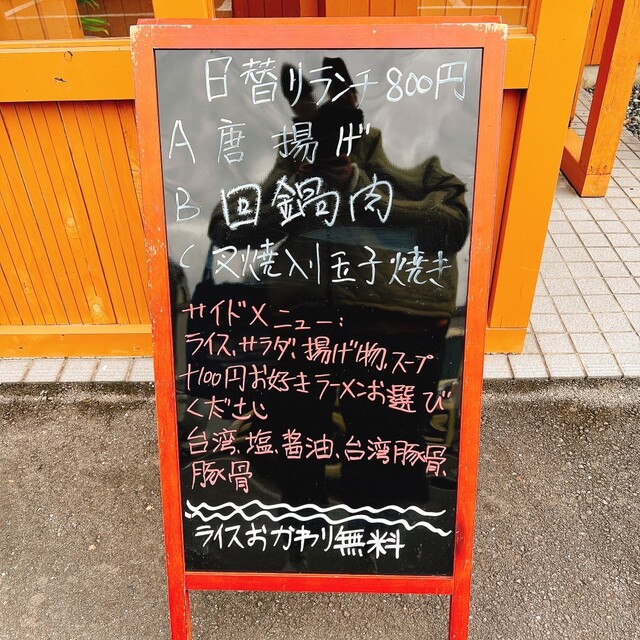 日替りランチ 800円
A 唐揚げ
B 回鍋肉
C 叉焼入り玉子焼き
サイドメニュー:
ライス、サラダ、揚げ物、スープ
+100円お好きラーメンお選び
ください
台湾、塩、醤油、台湾豚骨、
豚骨
ライスおかわり無料